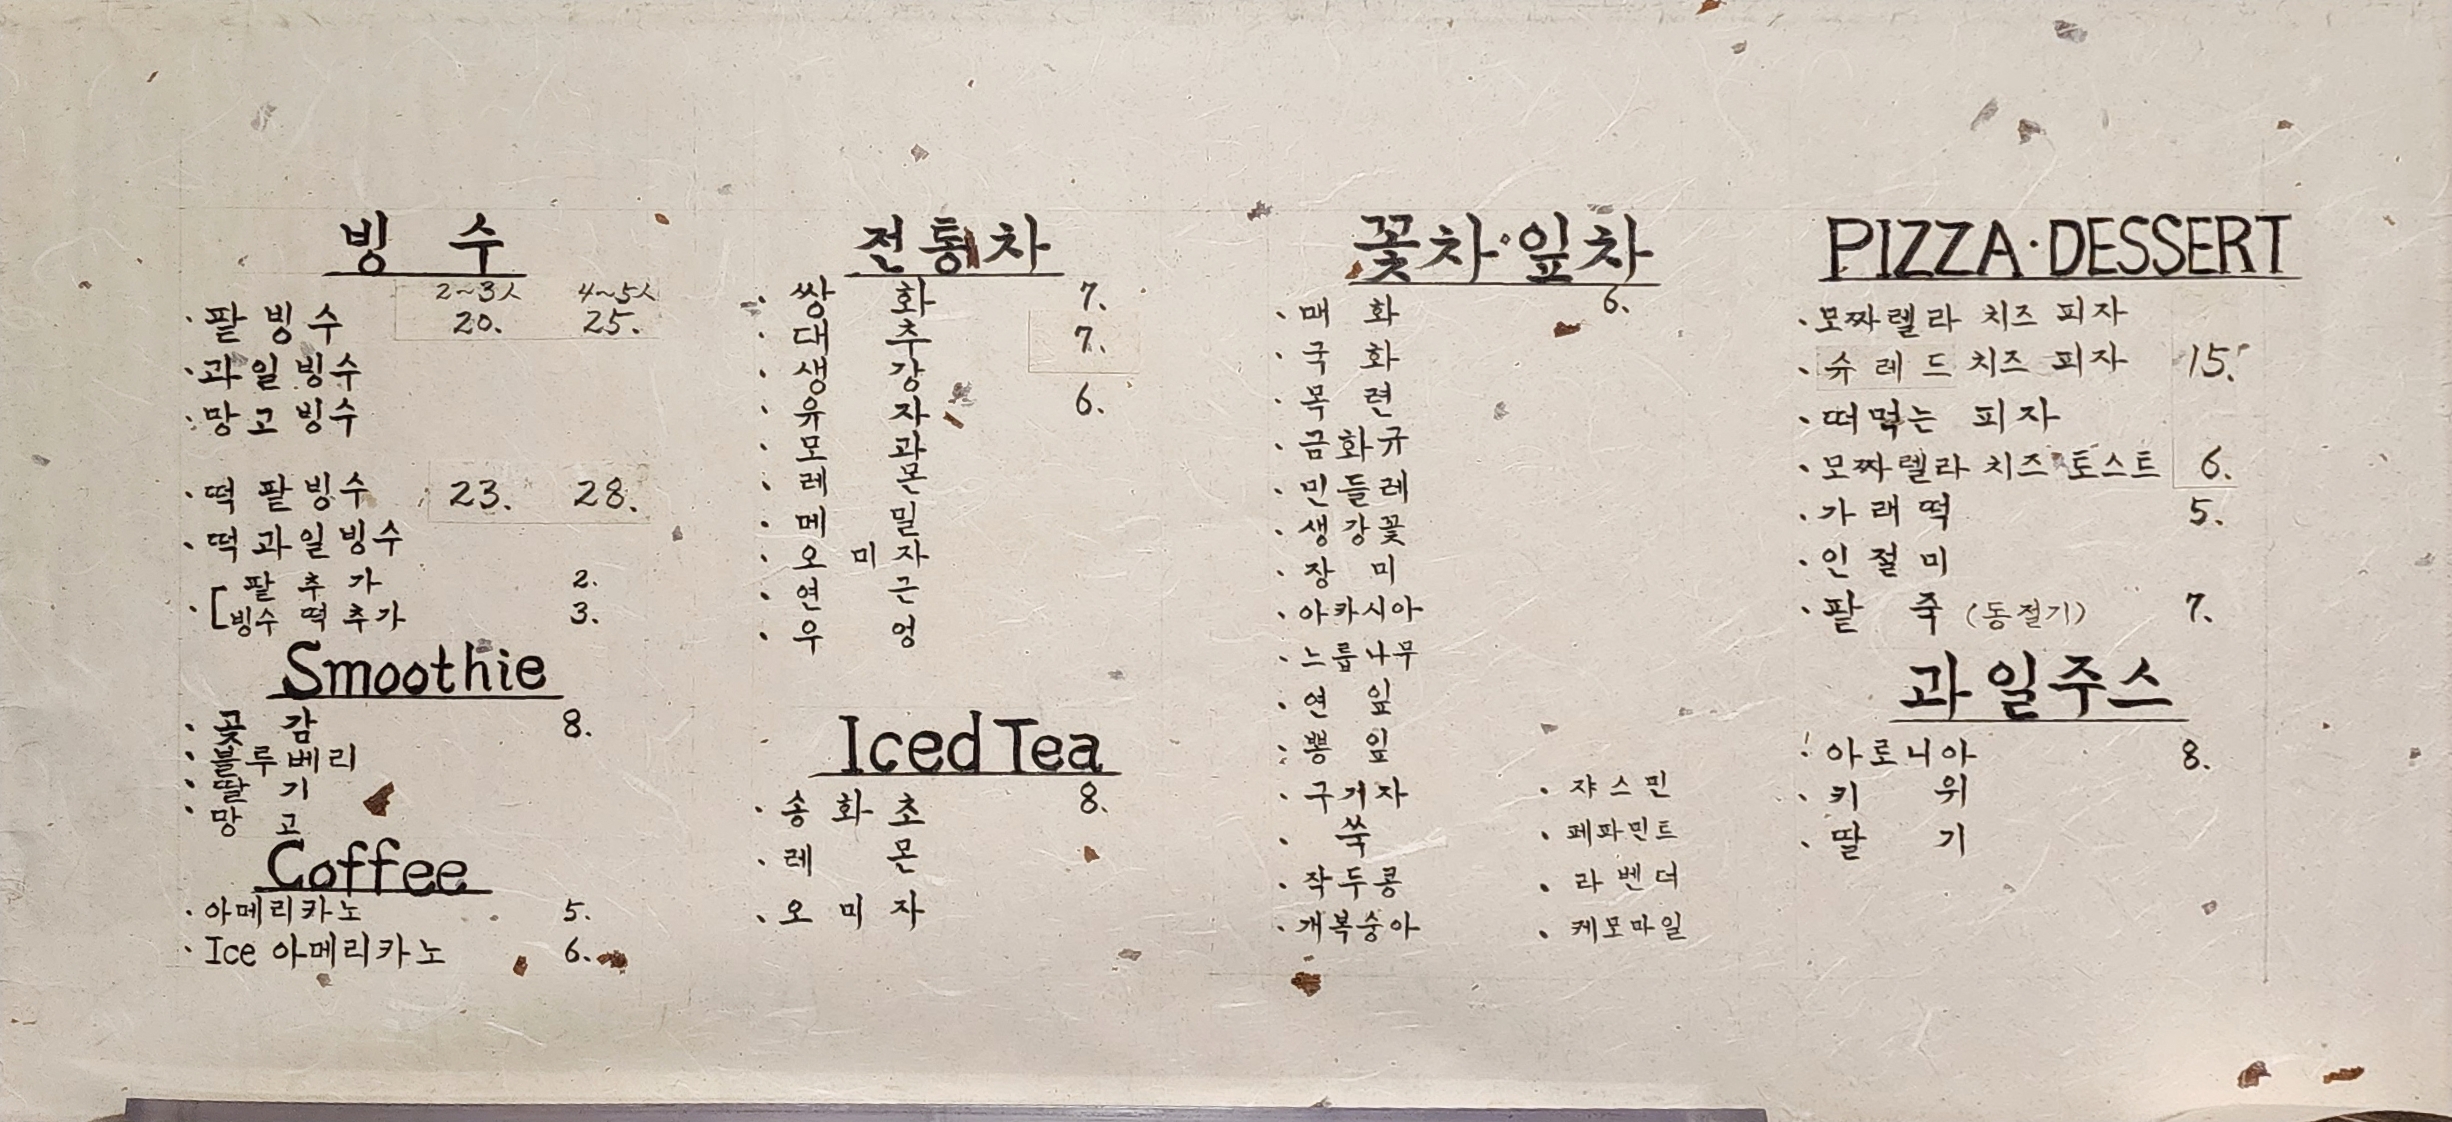 빙 수
2~3人 4~5人
· 팥 빙 수 20. 25.
· 과 일 빙 수
· 망 고 빙 수
· 떡 팥 빙 수 23. 28.
· 떡 과 일 빙 수
· [ 팥 추 가 2.
빙수 떡 추 가 3.
Smoothie
· 곶 감 8.
· 블 루 베 리
· 딸 기
· 망 고
Coffee
· 아메리카노 5.
· Ice 아메리카노 6.
전통차
· 쌍 화 7.
· 대 추 7.
· 생 강
· 유 자 6.
· 모 과
· 레 몬
· 메 밀
· 오 미 자
· 연 근
· 우 엉
Iced Tea
· 송 화 초 8.
· 레 몬
· 오 미 자
꽃차·잎차
6.
· 매 화
· 국 화
· 목 련
· 금화규
· 민들레
· 생강꽃
· 장 미
· 아카시아
· 느릅나무
· 연 잎
· 뽕 잎
· 구기자
· 쑥
· 작두콩
· 개복숭아
· 쟈스민
· 페파민트
· 라벤더
· 케모마일
PIZZA·DESSERT
· 모짜렐라 치즈 피자
· 슈레드 치즈 피자 15.
· 떠먹는 피자
· 모짜렐라 치즈 토스트 6.
· 가래떡 5.
· 인절미
· 팥 죽 (동절기) 7.
과일주스
· 아로니아 8.
· 키 위
· 딸 기